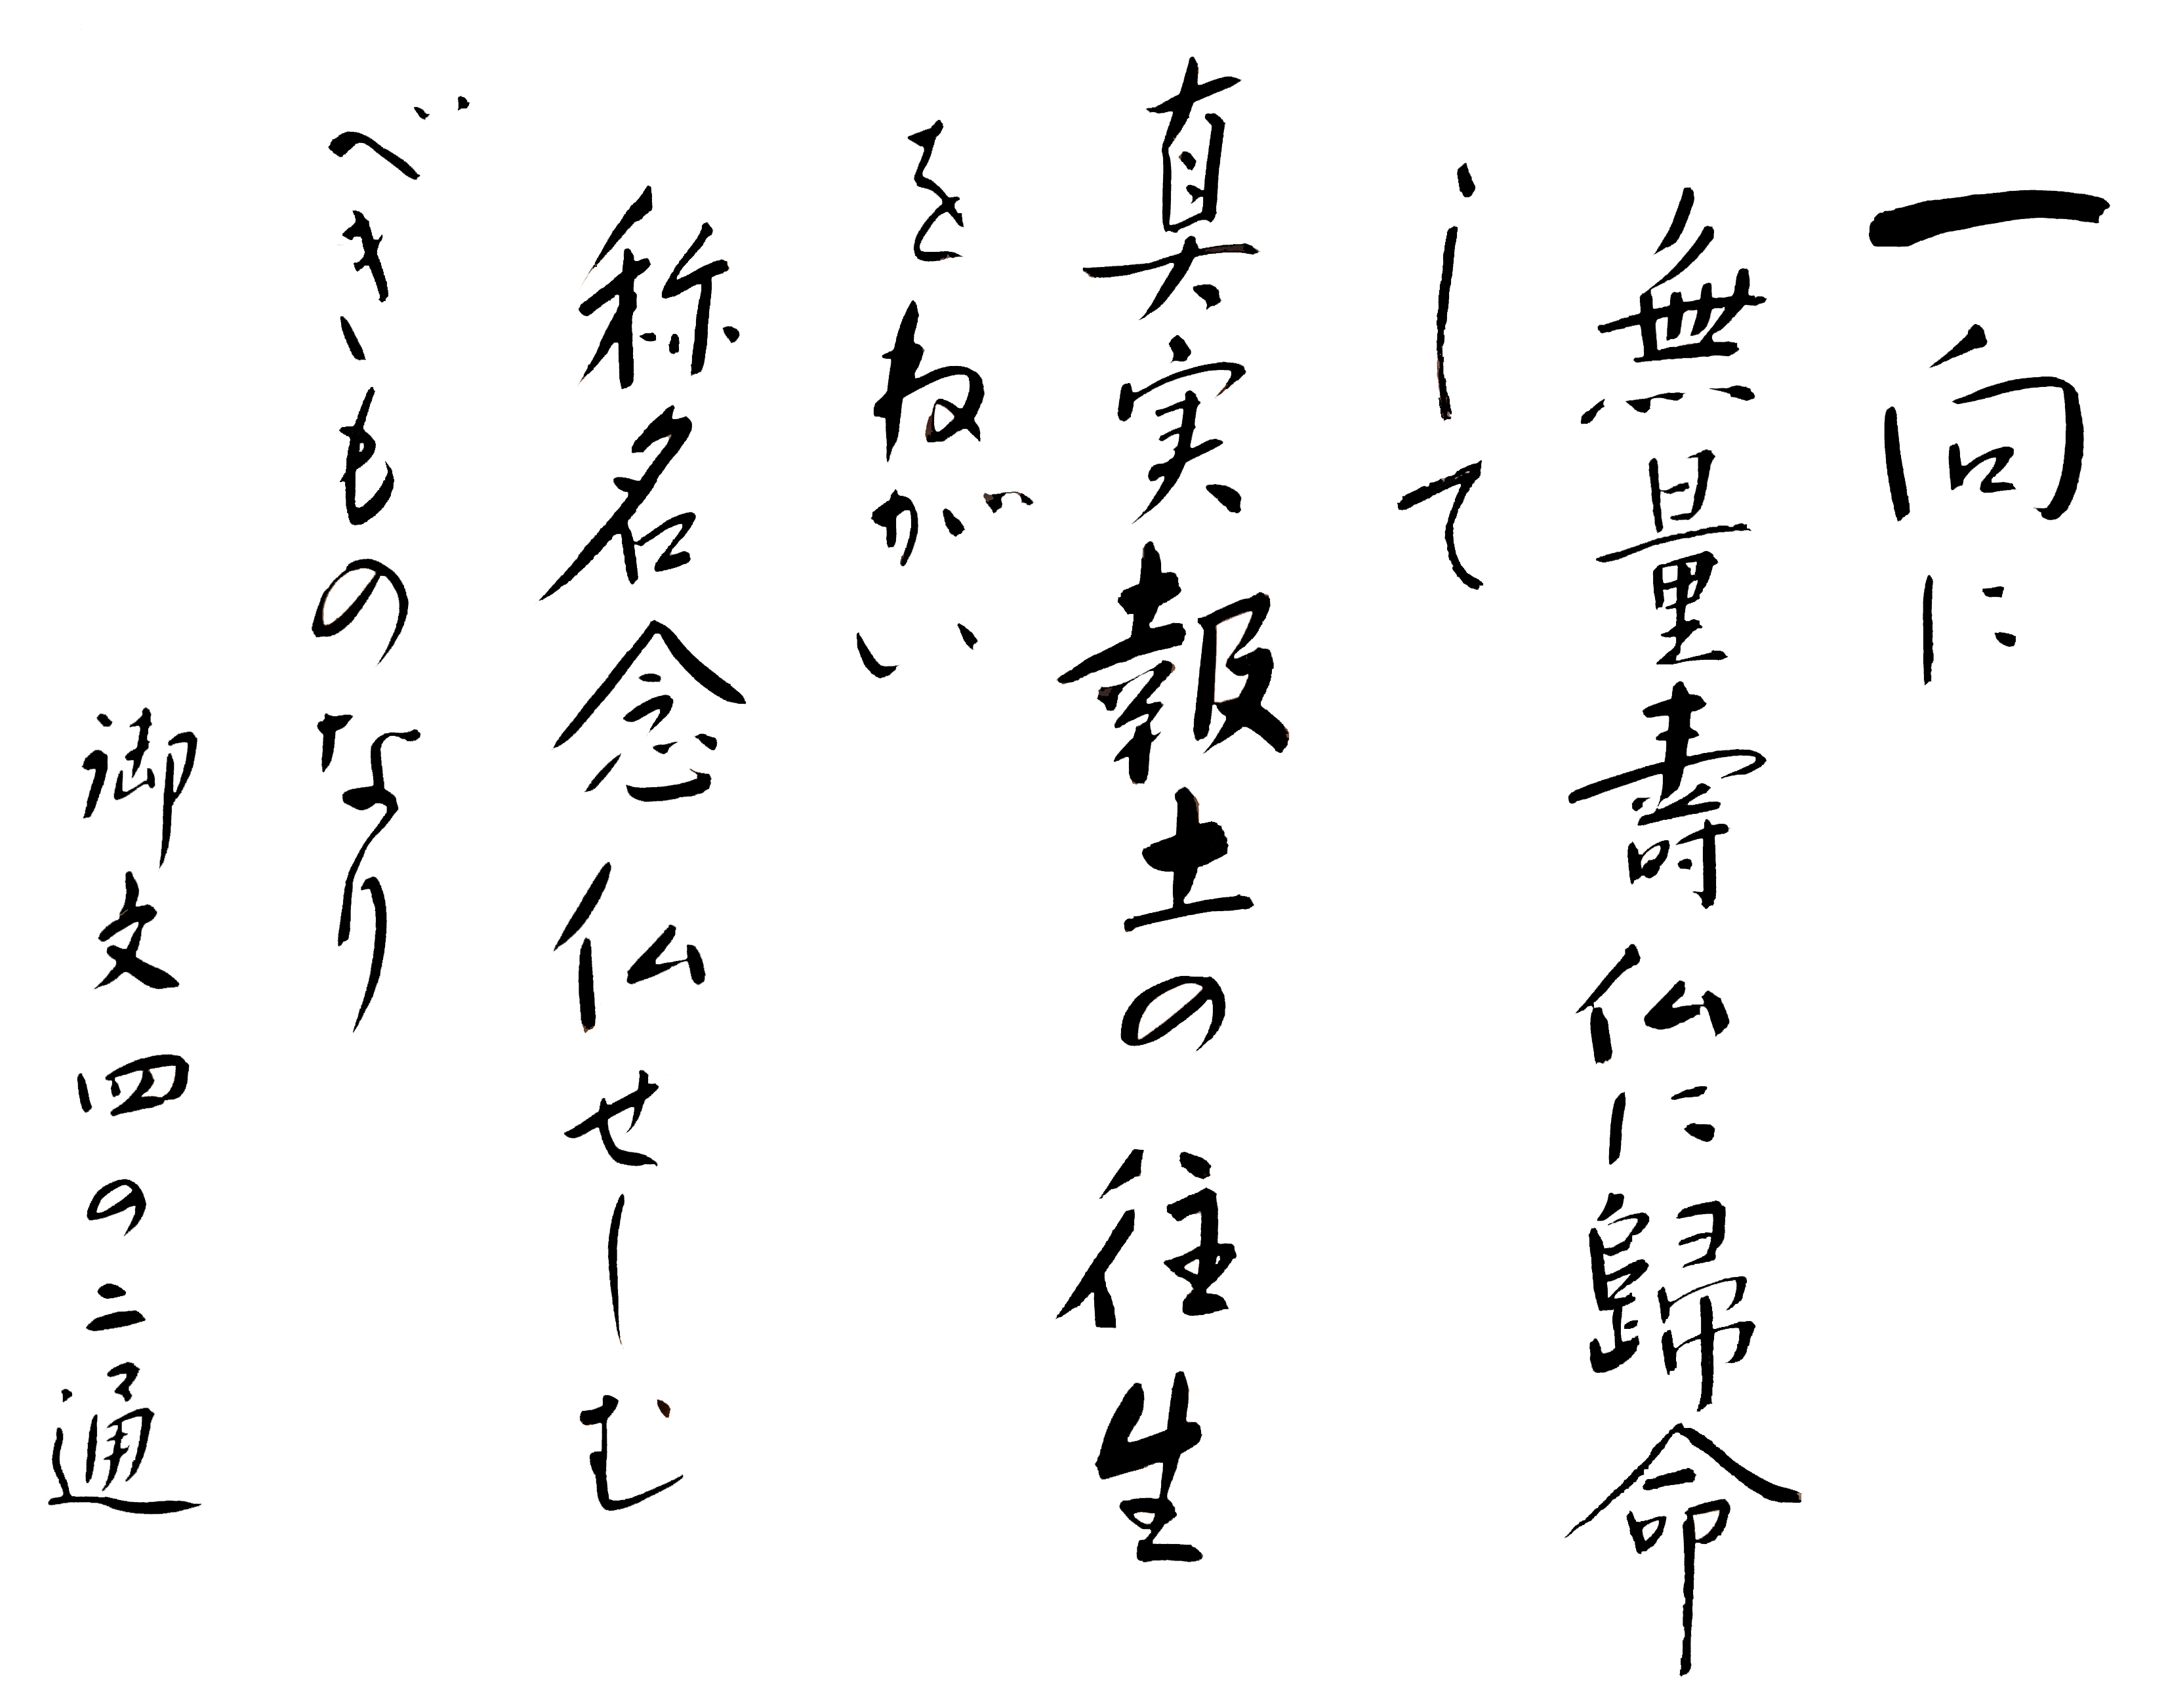 一向に
無量壽仏に歸命
して
真実報土の往生
をねがい
称名念仏せしむ
べきものなり
御文四の二通